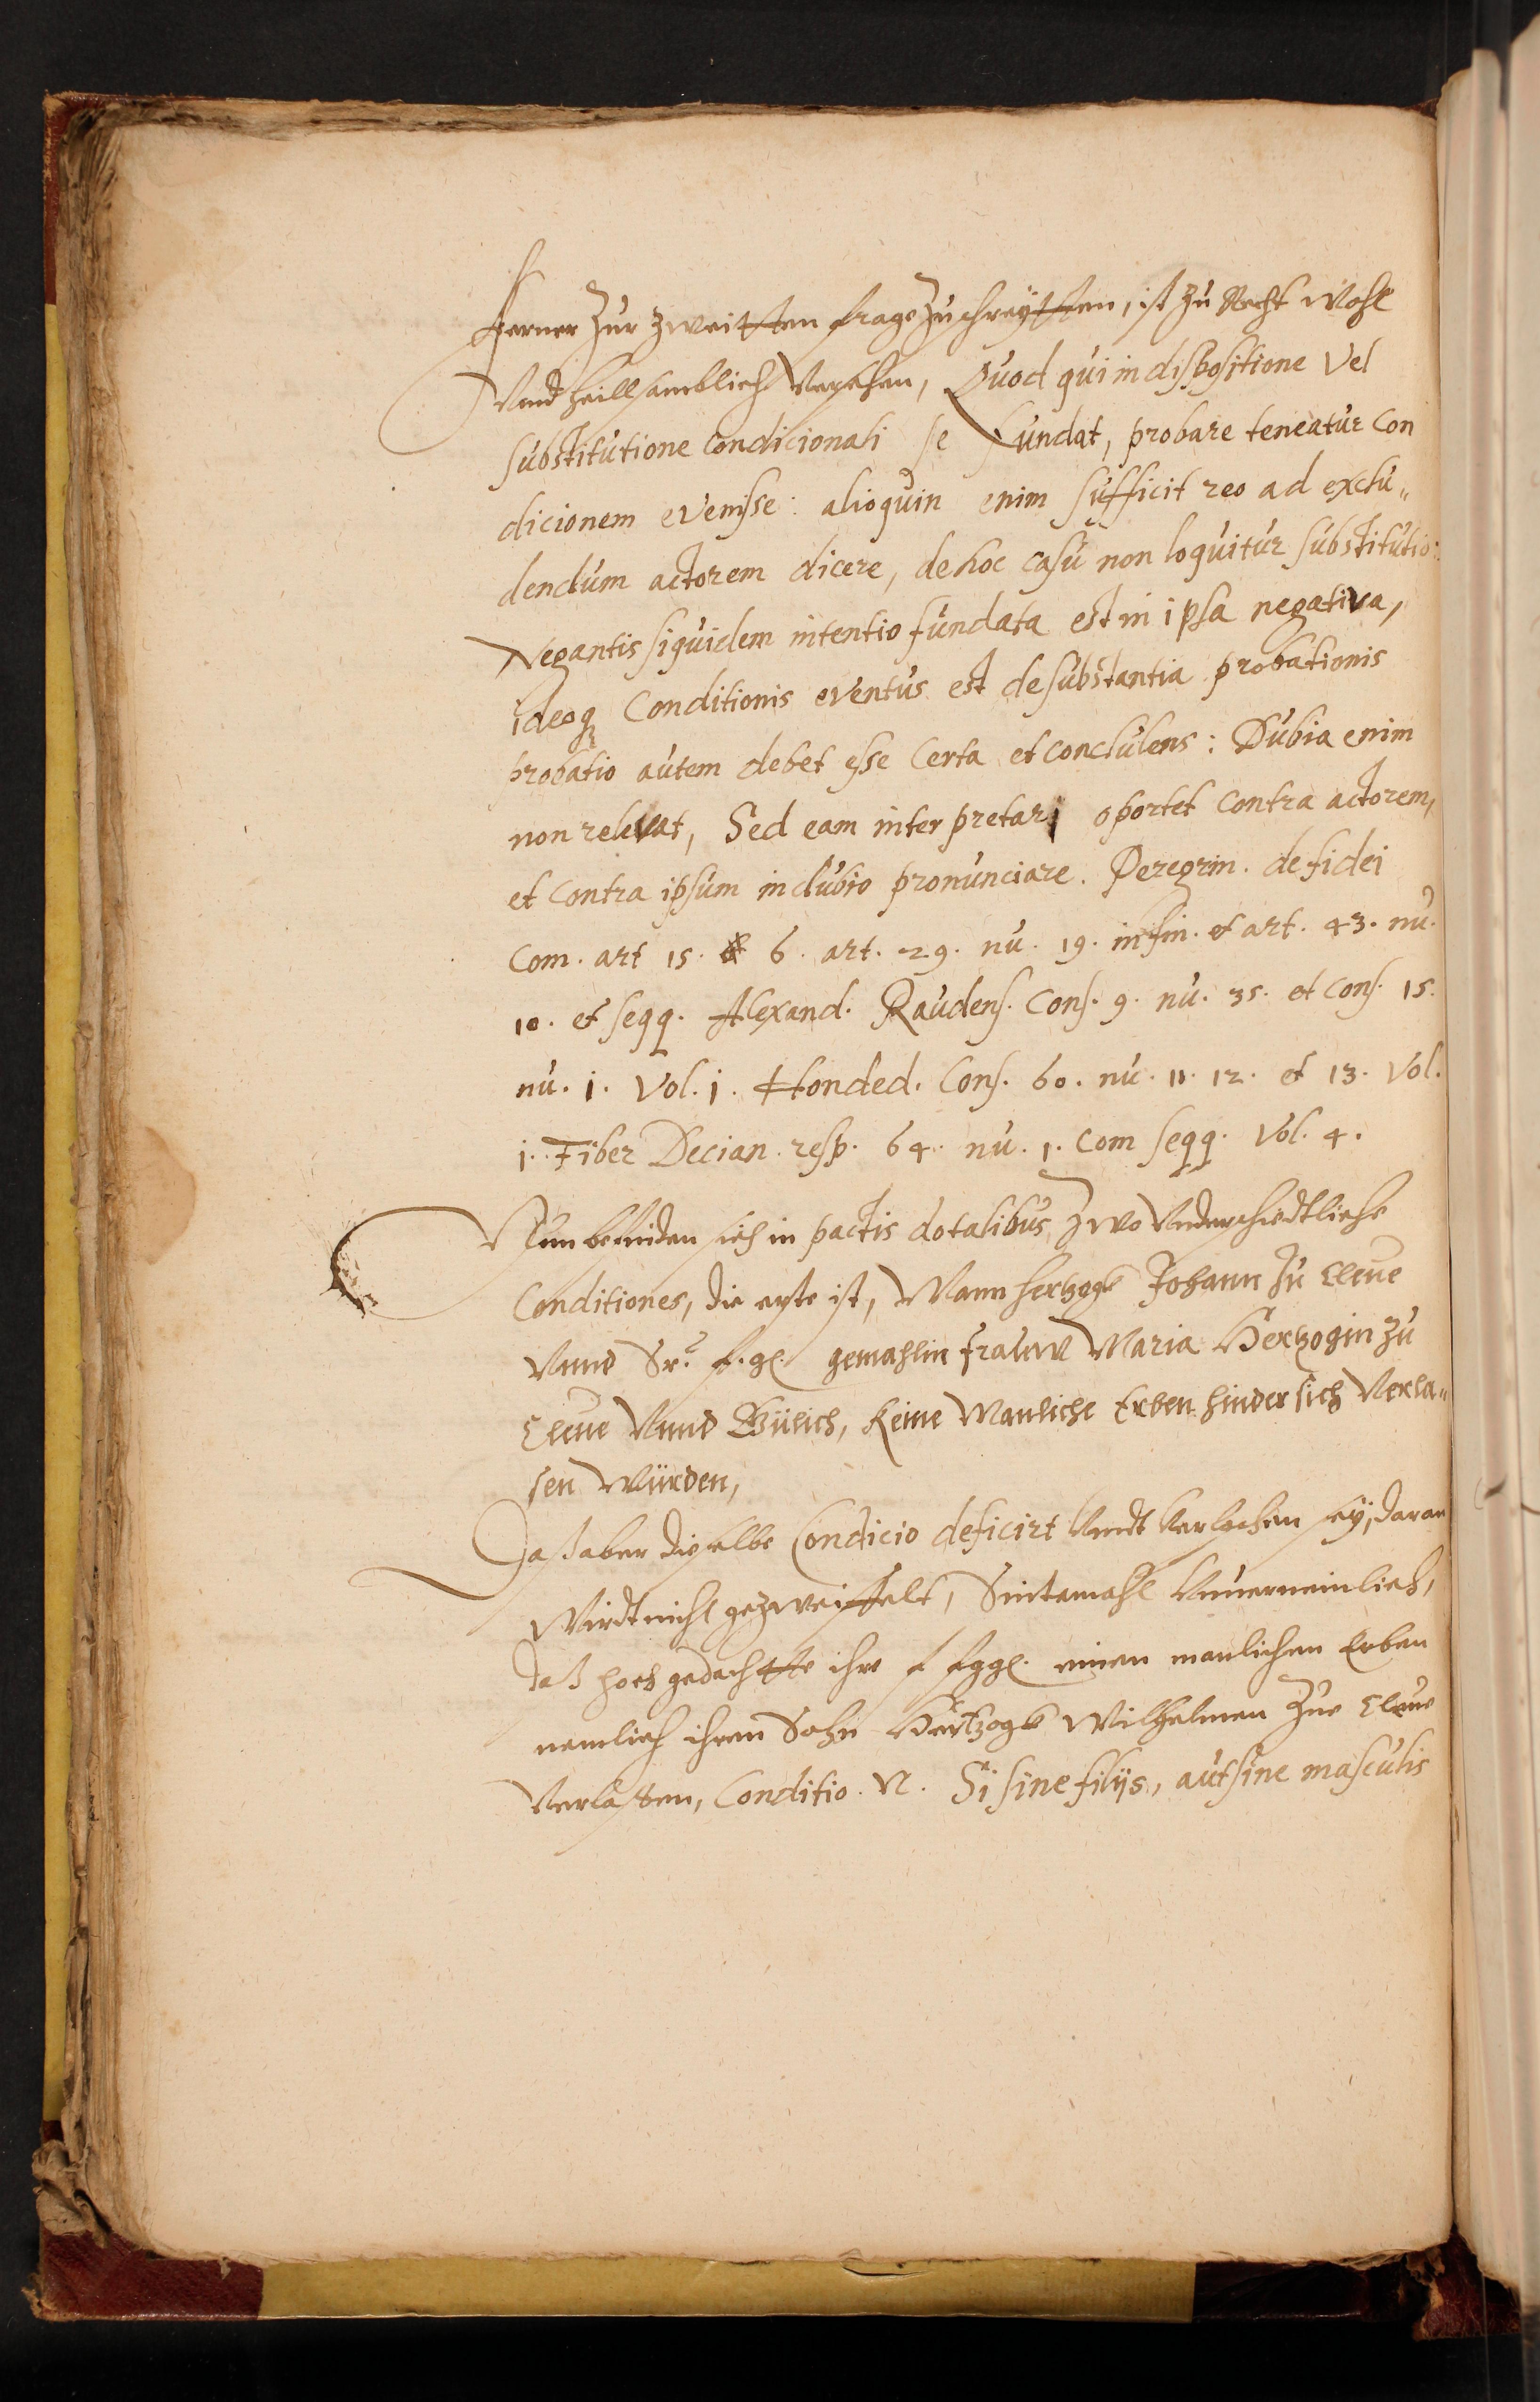 Ferner Zur Zweitten frage Zuschreytten, ist zu Recht wohl
Vnnd heillsamblich Versehen, Quod qui in dispositione Vel
substitutione condicionali se fundat, probare teneatur con
dicionem evenisse: alioquin enim sufficit reo ad exclu„
dendum actorem dicere, de hoc casu non loquitur substitutio:
Negantis siquidem intentio fundata est in ipsa negativa,
ideoq Conditionis eventus est de substantia probationis
probatio autem debet esse Certa et concludens: Dubia enim
non relevat, Sed eam interpretari oportet contra actorem,
et contra ipsum in dubio pronunciare. Peregrin. de fidei
Com. art 15. & 6. art. 29. nu. 19. in fin. et art. 43. nu.
10. et seqq. Alexand. Raudens. Cons. 9. nu. 35. et cons. 15.
nu. j. Vol. j. Honded. Cons. 60. nu. 11. 12. et 13. Vol.
j. Tiber Decian. resp. 64. nu. 1. Com seqq. Vol. 4.
Nun befinden sich in pactis dotalibus, Zwo Vnderschiedtliche
Conditiones, die erste ist, Wann hertzogk Johann Zu Cleue
Vnnd Sr. f. gl. gemahlin frauw Maria Hertzogin Zu
Cleue Vnnd Gülich, Keine Manliche Erben hinder sich Verla„
sen Würden,
Daß aber dieselbe Condicio deficirt Vnndt Verloschen sey, daran
Wirdt nicht gezweiffelt, Sintemahl Vnuerneinlich,
daß hochgedachtte ihre f fggl. einen manlichen Erben
nemlich ihren Sohn Hertzogk Wilhelmen Zue Cleue
Verlaßen, Conditio. N. Si sine filijs, aut sine masculis